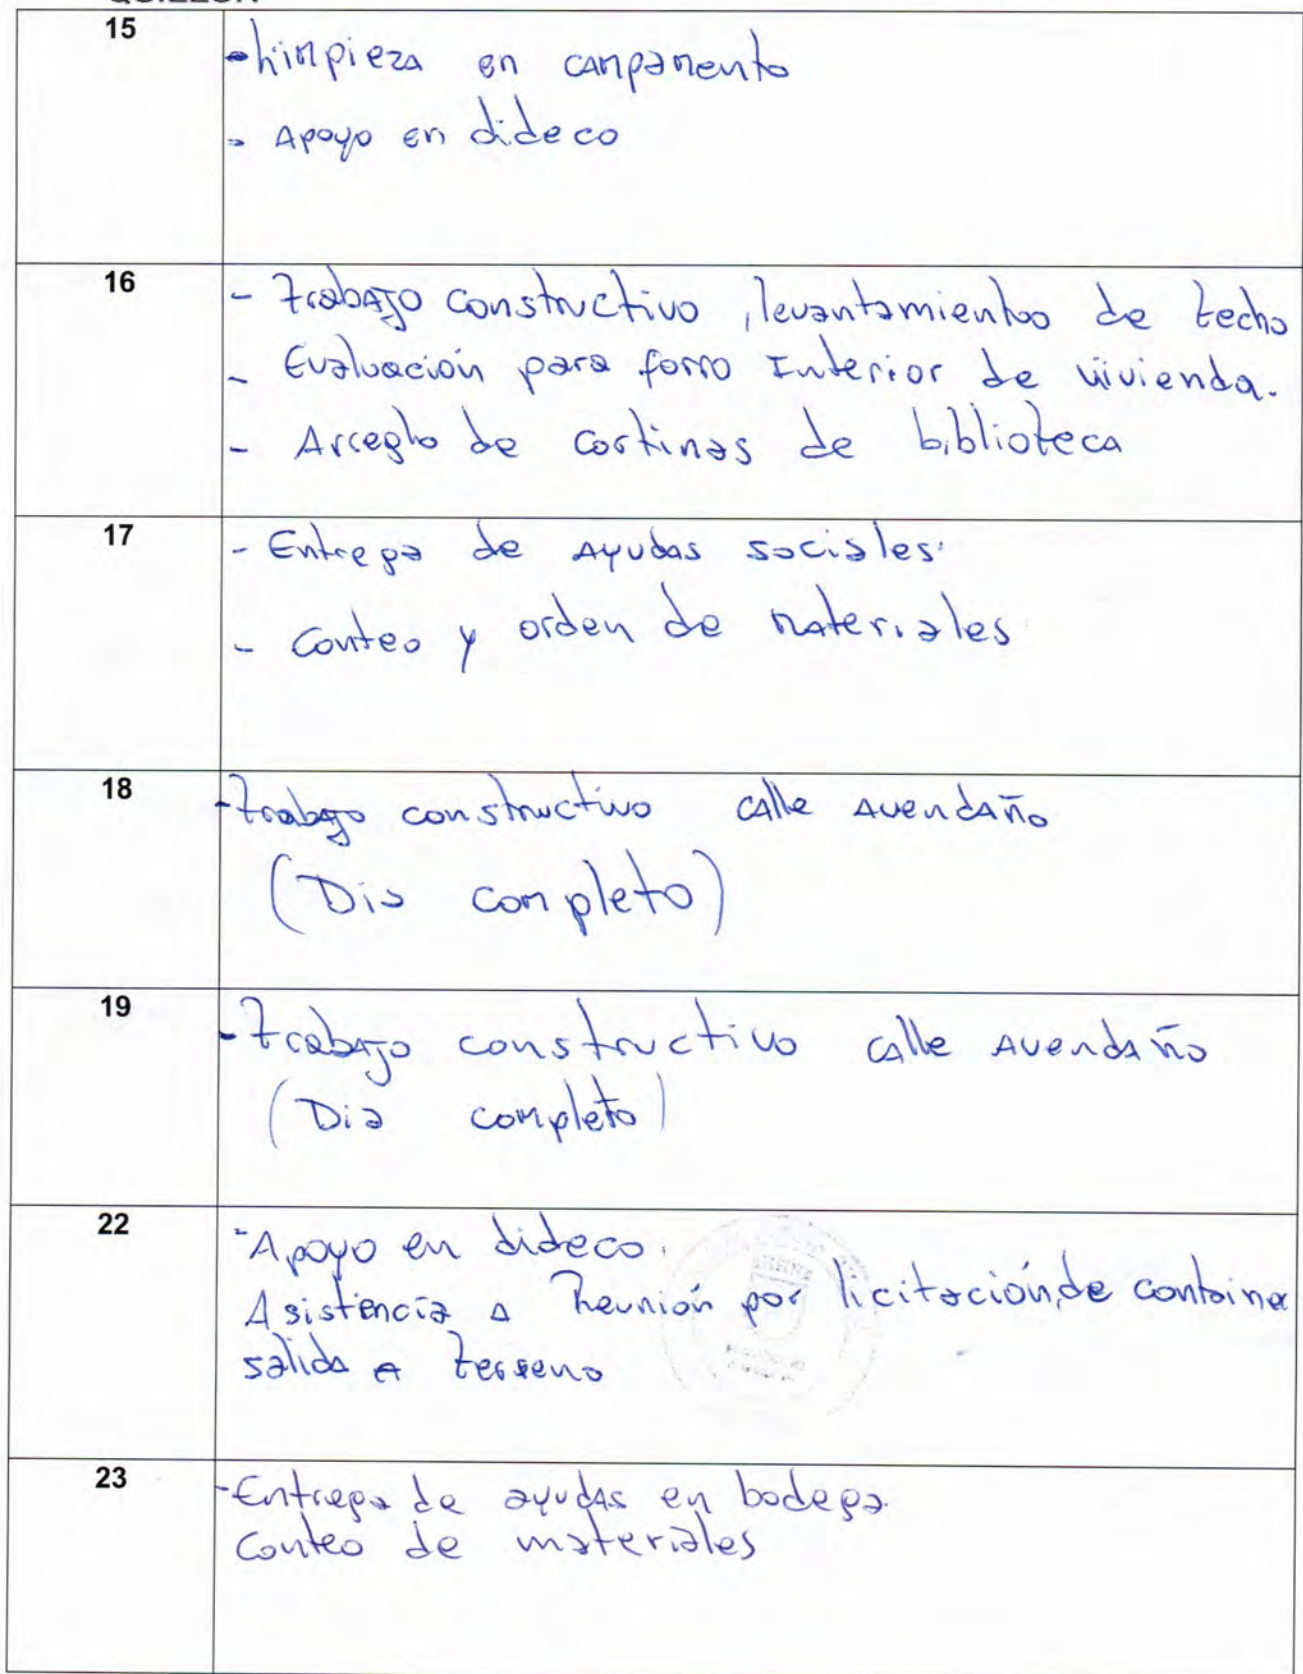 15
- Limpieza en campamento
- Apoyo en dideco
16
- Trabajo constructivo, levantamientos de techo
- Evaluación para forro Interior de vivienda.
- Arreglo de cortinas de biblioteca
17
- Entrega de Ayudas sociales.
- Conteo y orden de materiales
18
- trabajo constructivo calle Avendaño
(Dia completo)
19
- trabajo constructivo calle Avendaño
(Dia completo)
22
- Apoyo en dideco.
Asistencia a Reunión por licitación, de container
salida a terreno
23
- Entrega de ayudas en bodega.
Conteo de materiales